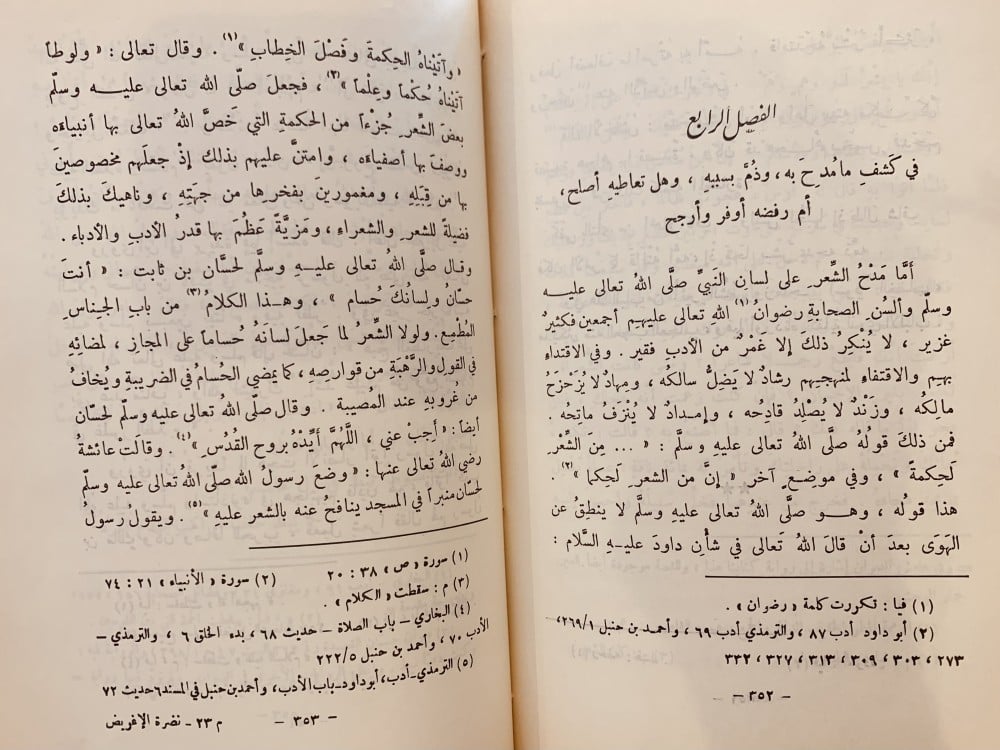 الفصل الرابع
في كَشفِ ما مُدِحَ به، وذُمَّ بسببِهِ، وهل تعاطيهِ أصلح،
أم رفضه أوفر وأرجح
أمَّا مَدْحُ الشِّعرِ على لسانِ النبيِّ صلَّى اللهُ تعالى عليه
وسلّم وألسُنِ الصحابةِ رضوانُ (١) الله تعالى عليهم أجمعين فكثيرٌ
غزير، لا يُنْكِرُ ذلكَ إلا غَمْرٌ من الأدبِ فقير. وفي الاقتداءِ
بهِم والاقتفاءِ لمنهجِهِم رشادٌ لا يَضِلُّ سالكُه، ومِهادٌ لا يُزَحْزَحُ
مالِكُه، وزَنْدٌ لا يُصْلِدُ قادِحُه، وإمدادٌ لا يُنْزَفُ ماتِحُه.
فمن ذلكَ قولُهُ صلَّى اللهُ تعالى عليهِ وسلَّم: « ... مِنَ الشِّعْرِ
لَحِكمةً »، وفي موضعٍ آخر « إنَّ من الشعرِ لَحِكما »(٢).
هذا قولُه، وهو صلَّى اللهُ تعالى عليهِ وسلَّم لا ينطِقُ عن
الهَوَى بعدَ أنْ قالَ اللهُ تَعالى في شأنِ داودَ عليهِ السَّلام:
(١) فيا: تكررت كلمة « رضوان ».
(٢) أبو داود أدب ٨٧، والترمذي أدب ٦٩، وأحمد بن حنبل ٢٦٩/١،
٢٧٣، ٣٠٣، ٣٠٩، ٣١٣، ٣٢٧، ٣٣٢
- ٣٥٢ -
« وآتَيْناهُ الحِكمةَ وفَصْلَ الخِطابِ »(١). وقال تعالى: « ولوطاً
آتَيْناهُ حُكْماً وعِلْماً »(٢)، فجعلَ صلّى الله تعالى عليه وسلّم
بعضَ الشِّعرِ جُزْءاً من الحكمةِ التي خَصَّ اللهُ تعالى بها أنبياءَه
ووصفَ بها أصفياءَه، وامتنَّ عليهم بذلك إذْ جعلَهم مخصوصينَ
بها من قِبَلِهِ، ومغمورينَ بفخرِها من جهَتِهِ، وناهيكَ بذلكَ
فضيلةً للشعرِ والشعراءِ، ومَزِيَّةً عَظُمَ بها قدرُ الأدبِ والأدباء.
وقال صلَّى اللهُ تعالى عليهِ وسلَّم لحسَّان بن ثابت: « أنتَ
حسّانُ ولِسانُكَ حُسام »، وهذا الكلامُ(٣) من بابِ الجِناسِ
المُطْمِع. ولولا الشِّعرُ لما جَعلَ لسانَهُ حُساماً على المجازِ، لمضائِهِ
في القولِ والرَّهْبَةِ من قوارصِهِ، كما يمضي الحُسامُ في الضريبةِ ويُخافُ
من غُروبِهِ عند المُصيبة. وقال صلّى اللهُ تعالى عليه وسلّم لحسّان
أيضاً: « أجِبْ عني، اللَّهُمَّ أيِّدْهُ بروح القُدُسِ »(٤). وقالَتْ عائشةُ
رضي اللهُ تعالى عنها: « وضعَ رسولُ اللهِ صلّى اللهُ تعالى عليه وسلّم
لحسّان منبراً في المسجد ينافحُ عنه بالشعر عليهِ »(٥). ويقولُ رسولُ
(١) سورة « ص » ٣٨: ٢٠ (٢) سورة « الأنبياء » ٢١: ٧٤
(٣) م: سقطت « الكلام ».
(٤) البخاري – باب الصلاة – حديث ٦٨، بدء الخلق ٦، والترمذي –
الأدب ٧٠، وأحمد بن حنبل ٢٢٢/٥
(٥) الترمذي-أدب، أبو داود-باب الأدب، وأحمد بن حنبل في المسند ٦ حديث ٧٢
- ٣٥٣ - م ٢٣ - نضرة الإغريض